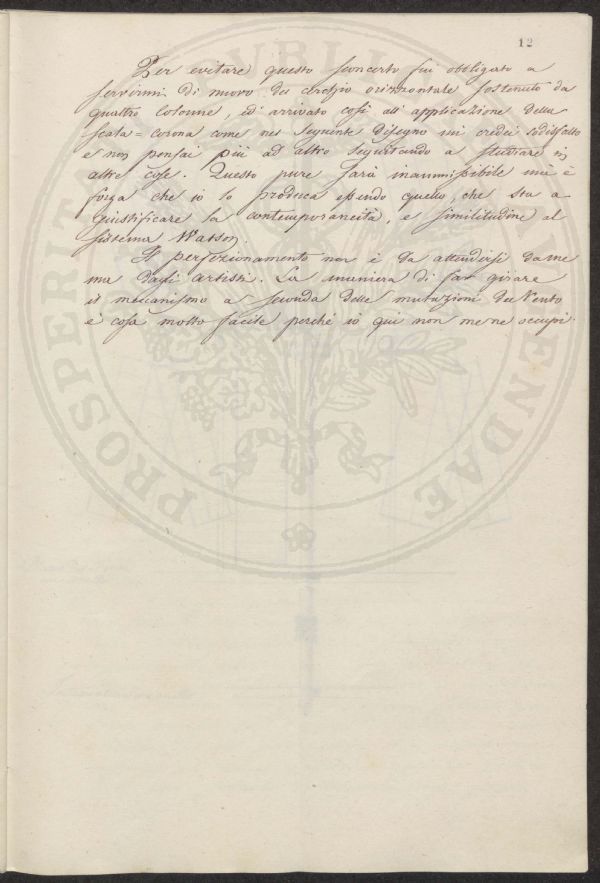 12
Per evitare questo sconcerto fui obbligato a
servirmi di nuovo del cerchio orizzontale sostenuto da
quattro colonne, ed arrivato così all'applicazione della
scala=corona come nel seguente disegno mi credei sodisfatto
e non pensai più ad altro seguitando a studiare in
altre cose. Questo pure sarà inammissibile mi è
forza che io lo produca essendo quello, che sta a
giustificare la contemporaneità, e similitudine al
sistema Watson.
Il perfezionamento non è da attendersi da me
ma dagli artisti. La maniera di far girare
il meccanismo a seconda delle mutazioni del Vento
è cosa molto facile perchè io qui non me ne occupi.
PROSPERITATI PUBLICAE AUGENDAE